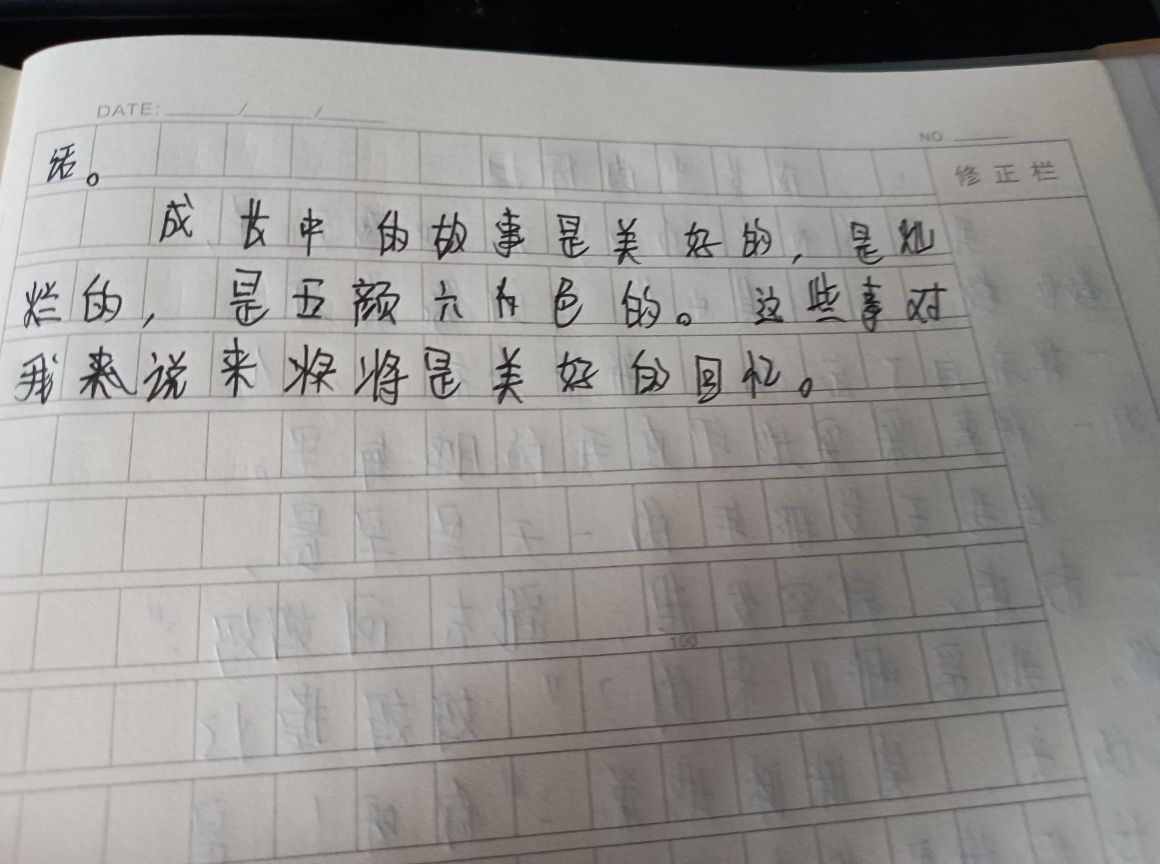 DATE: / /
NO.
修正栏
话。
成长中的故事是美好的，是灿
烂的，是五颜六色的。这些事对
我来说来将将是美好的回忆。
100